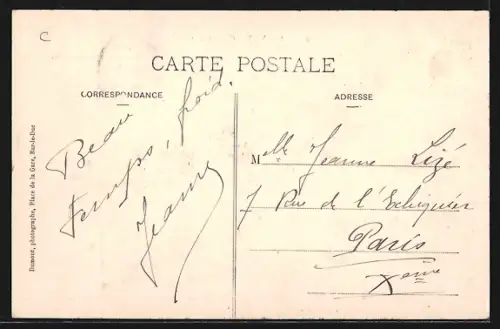 C
CARTE POSTALE
CORRESPONDANCE
ADRESSE
Beau
temps, froid.
Jeanne
Mlle Jeanne Lizé
7 Rue de l'Echiquier
Paris
Xeme
Dumont, photographe, Place de la Gare, Bar-le-Duc